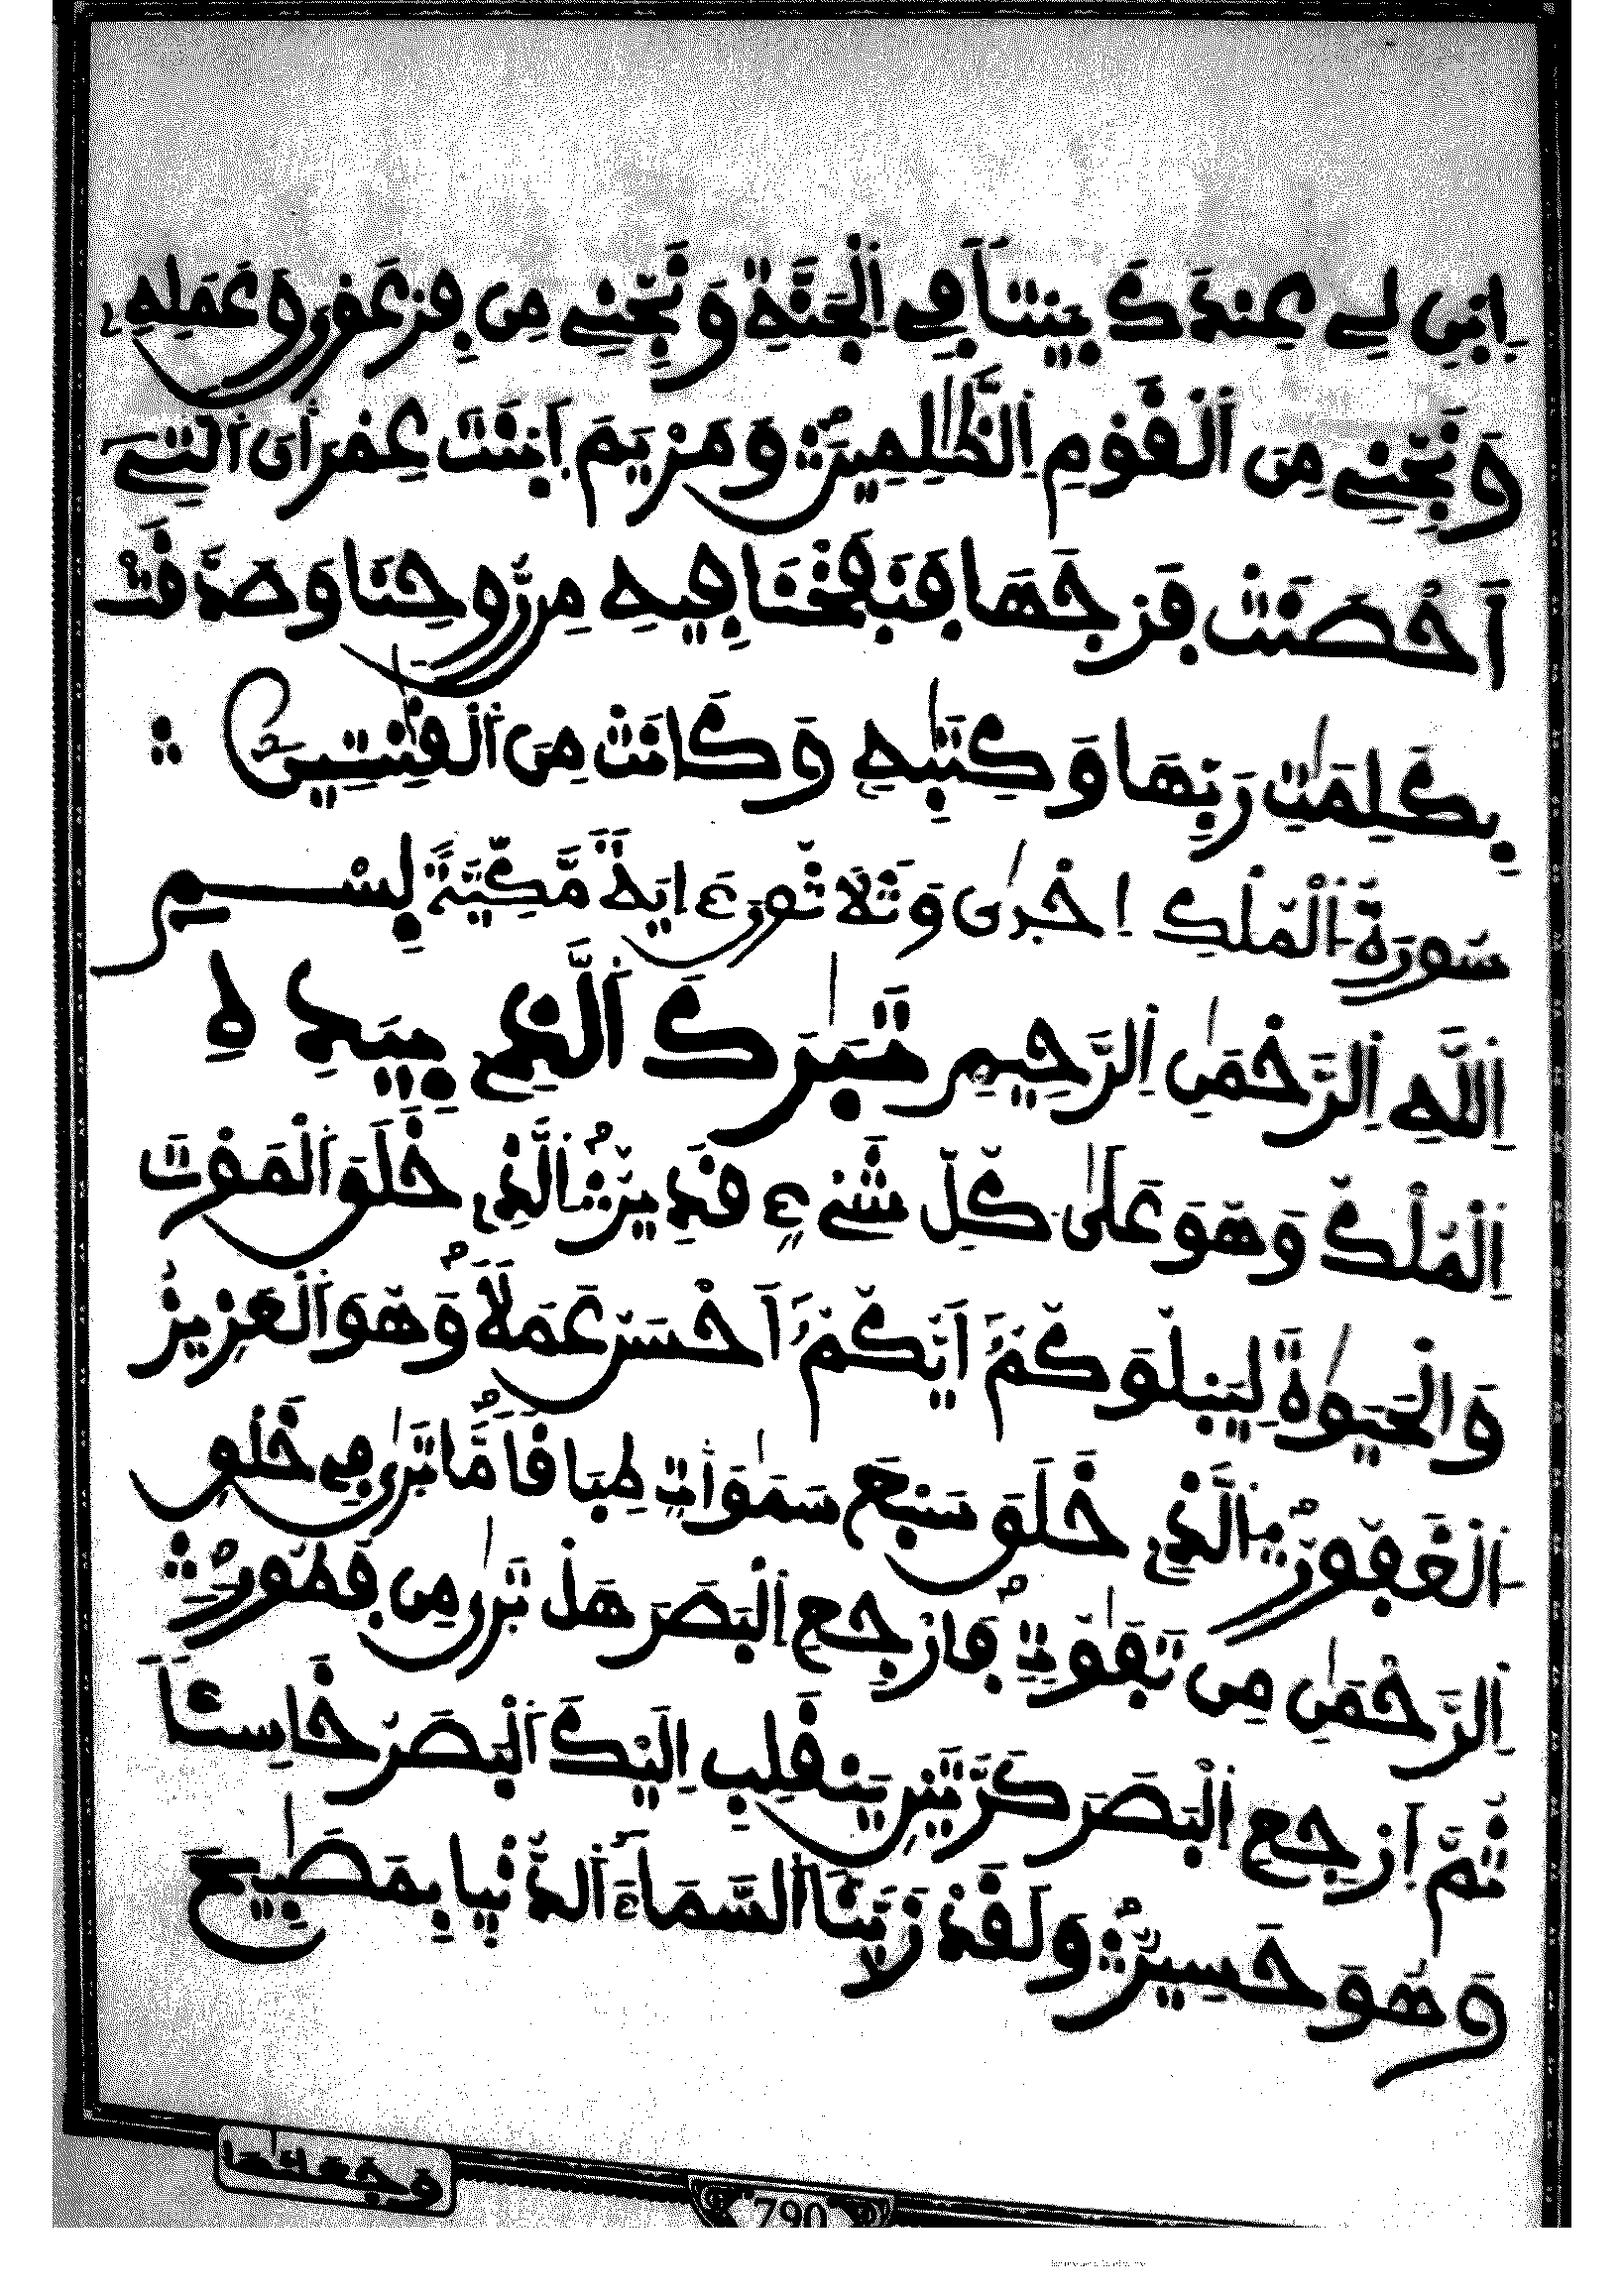 اِبْنِ لِي عِندَكَ بَيْتاً فِي اِلْجَنَّةِ وَنَجِّنِي مِن فِرْعَوْنَ وَعَمَلِهِ
وَنَجِّنِي مِنَ اَلْقَوْمِ اِلظَّٰلِمِينَ وَمَرْيَمَ اَبْنَتَ عِمْرَٰنَ اَلتِي
أَحْصَنَتْ فَرْجَهَا فَنَفَخْنَا فِيهِ مِن رُّوحِنَا وَصَدَّقَتْ
بِكَلِمَٰتِ رَبِّهَا وَكِتَٰبِهِ وَكَانَتْ مِنَ اَلْقَٰنِتِينَ
سُورَةُ اَلْمُلْكِ اِحْدَىٰ وَثَلَاثُونَ ءَايَةً مَّكِّيَّةً بِسْمِ
اِللَّهِ اِلرَّحْمَٰنِ اِلرَّحِيمِ تَبَٰرَكَ اَلَّذِي بِيَدِهِ
اِلْمُلْكُ وَهُوَ عَلَىٰ كُلِّ شَيْءٍ قَدِيرٌ اَلَّذِي خَلَقَ اَلْمَوْتَ
وَالْحَيَوٰةَ لِيَبْلُوَكُمُ أَيُّكُمُ أَحْسَنُ عَمَلاً وَهُوَ اَلْعَزِيزُ
اَلْغَفُورُ اَلَّذِي خَلَقَ سَبْعَ سَمَٰوَٰتٍ طِبَاقاً مَّا تَرَىٰ فِي خَلْقِ
اِلرَّحْمَٰنِ مِن تَفَٰوُتٍ فَارْجِعِ اِلْبَصَرَ هَلْ تَرَىٰ مِن فُطُورٍ
ثُمَّ اَرْجِعِ اِلْبَصَرَ كَرَّتَيْنِ يَنقَلِبِ اِلَيْكَ اَلْبَصَرُ خَاسِئاً
وَهُوَ حَسِيرٌ وَلَقَدْ زَيَّنَّا اَلسَّمَآءَ اَلدُّنْيَا بِمَصَٰبِيحَ
وجعلنٰها
790